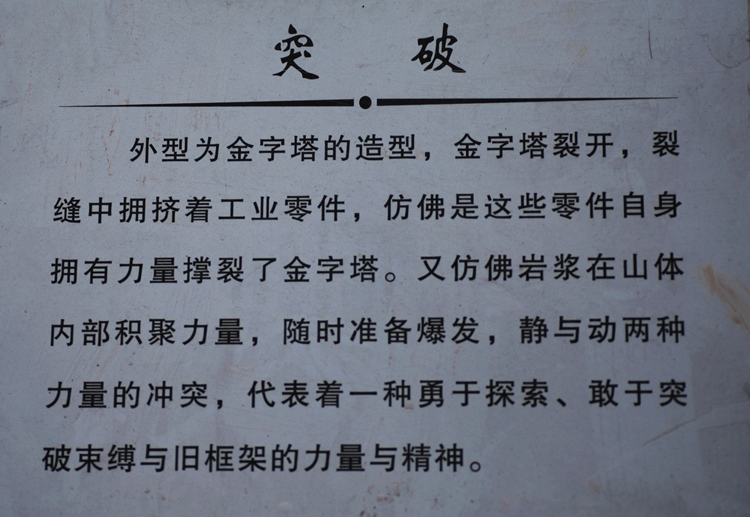 突破
外型为金字塔的造型，金字塔裂开，裂
缝中拥挤着工业零件，仿佛是这些零件自身
拥有力量撑裂了金字塔。又仿佛岩浆在山体
内部积聚力量，随时准备爆发，静与动两种
力量的冲突，代表着一种勇于探索、敢于突
破束缚与旧框架的力量与精神。